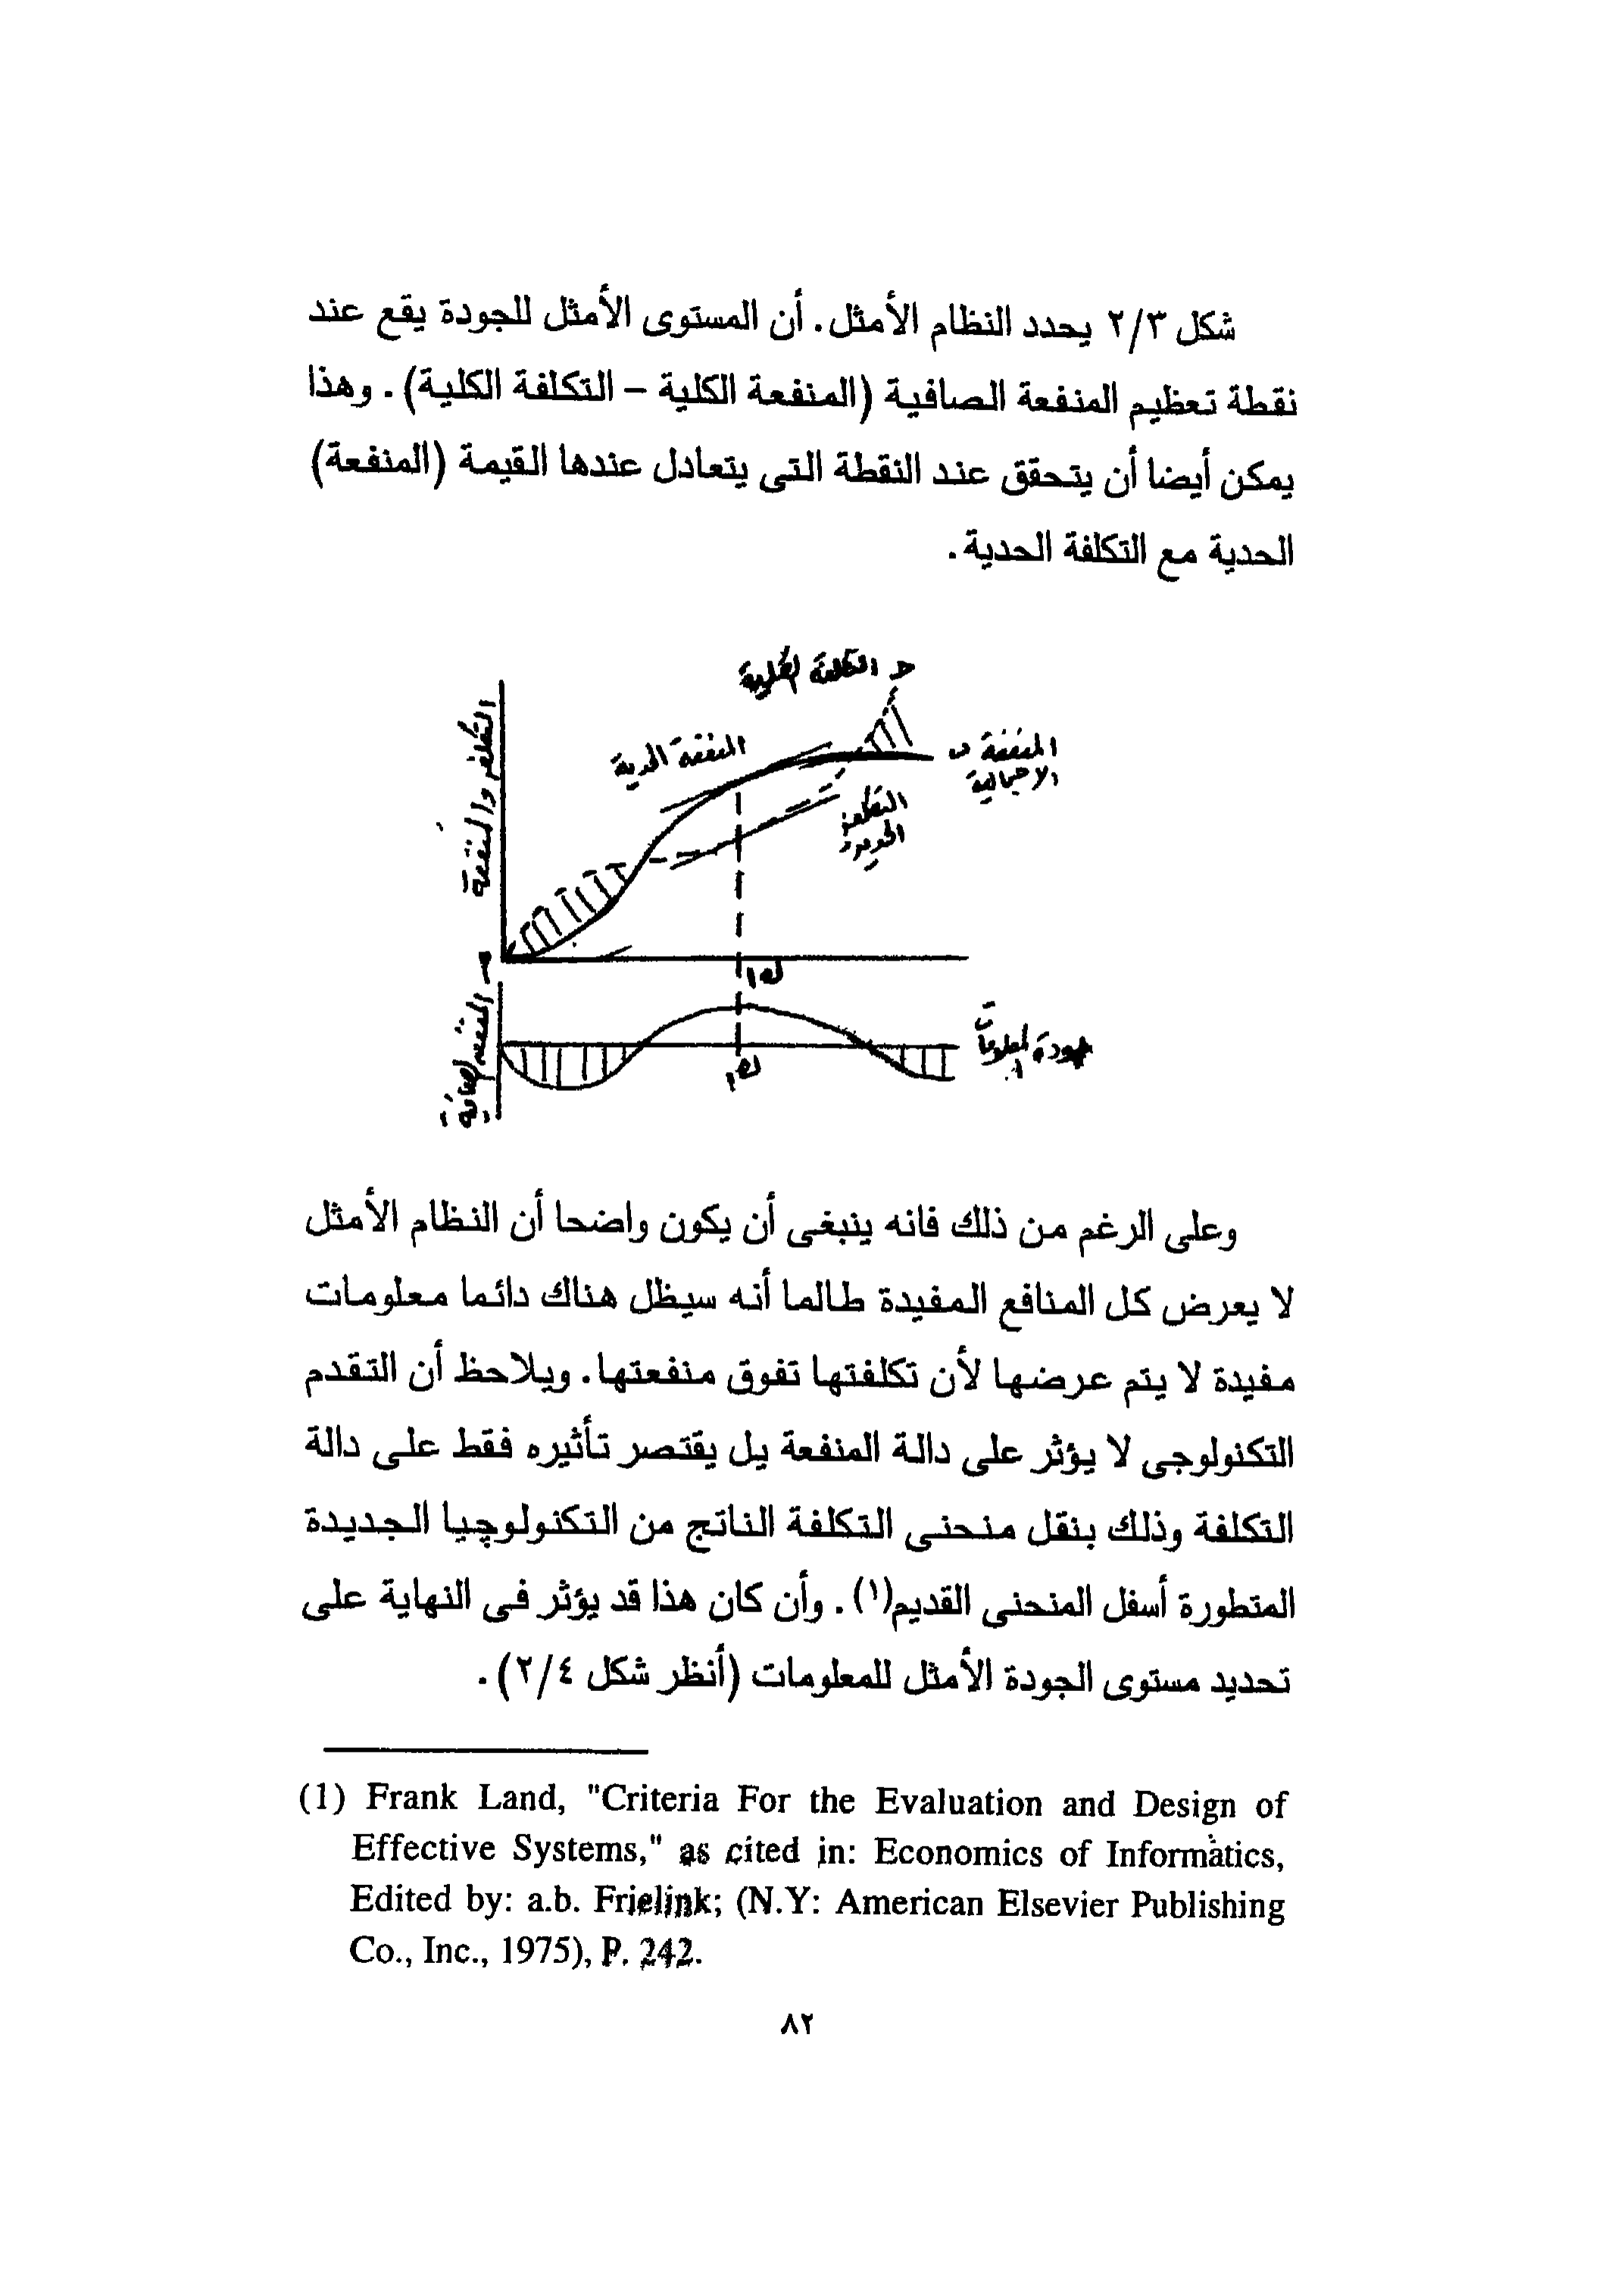 شكل ٢/٣ يحدد النظام الأمثل. أن المستوى الأمثل للجودة يقع عند
نقطة تعظيم المنفعة الصافية (المنفعة الكلية – التكلفة الكلية). وهذا
يمكن أيضا أن يتحقق عند النقطة التى يتعادل عندها القيمة (المنفعة)
الحدية مع التكلفة الحدية.
حـ التكلفة الكلية
المنفعة الحدية
المنفعة ب
الاجمالية
التكلفة
الحدية
التكلفة والمنفعة
ك١
المنفعة الصافية
جودة المعلومات
ك١
وعلى الرغم من ذلك فانه ينبغى أن يكون واضحا أن النظام الأمثل
لا يعرض كل المنافع المفيدة طالما أنه سيظل هناك دائما معلومات
مفيدة لا يتم عرضها لأن تكلفتها تفوق منفعتها. ويلاحظ أن التقدم
التكنولوجى لا يؤثر على دالة المنفعة يل يقتصر تأثيره فقط على دالة
التكلفة وذلك بنقل منحنى التكلفة الناتج من التكنولوچيا الجديدة
المتطورة أسفل المنحنى القديم(١). وأن كان هذا قد يؤثر فى النهاية على
تحديد مستوى الجودة الأمثل للمعلومات (أنظر شكل ٢/٤).
(1) Frank Land, "Criteria For the Evaluation and Design of
Effective Systems," as cited in: Economics of Informatics,
Edited by: a.b. Frielink; (N.Y: American Elsevier Publishing
Co., Inc., 1975), P. 242.
٨٢